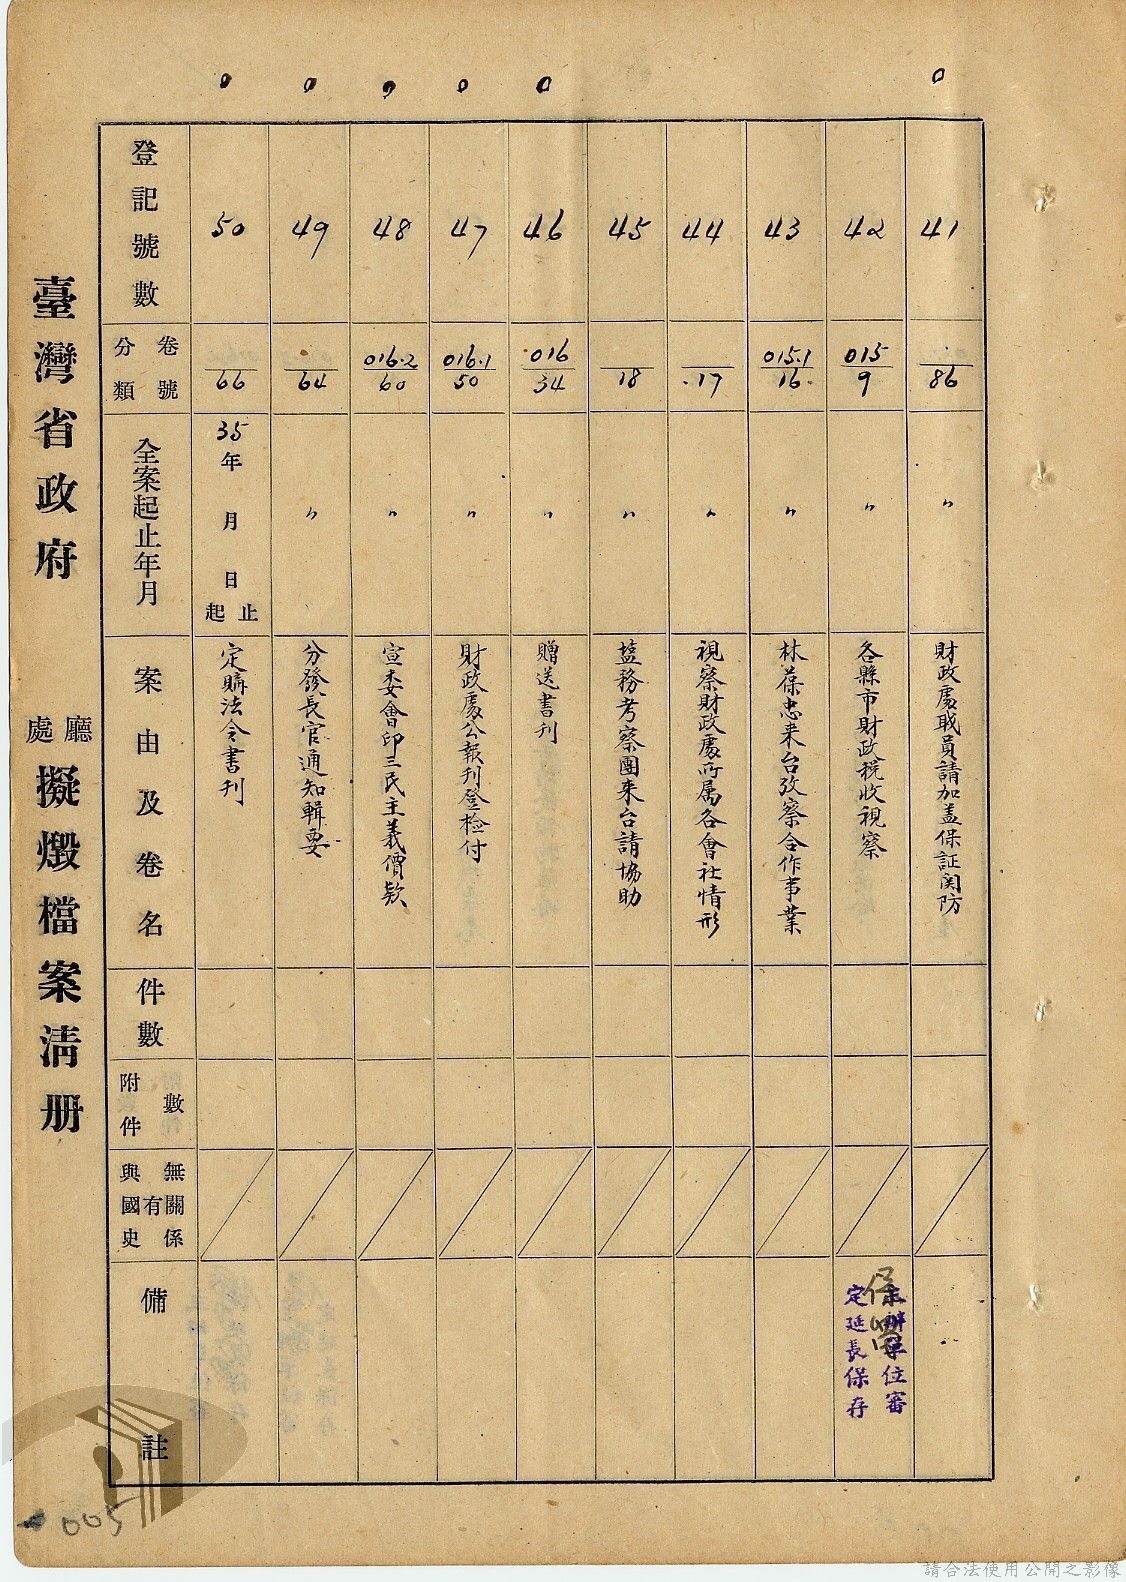 臺灣省政府 廳處 擬燬檔案清册
登記號數
分類 卷號
全案起止年月
案由及卷名
件數
附件 數
與國史 有 無關係
備註
41
86
〃
財政處职員請加盖保証関防
42
015
9
〃
各縣市財政税收視察
保留
主辦單位審
定延長保存
43
015.1
16
〃
林葆忠来台攷察合作事業
44
17
〃
視察財政處所属各會社情形
45
18
〃
塩務考察團来台請協助
46
016
34
〃
贈送書刊
47
016.1
50
〃
財政處公報刊登检付
48
016.2
60
〃
宣委會印三民主義價欵
49
64
〃
分發長官通知輯要
50
66
35年 月 日 止起
定購法令書刊
005
請合法使用公開之影像